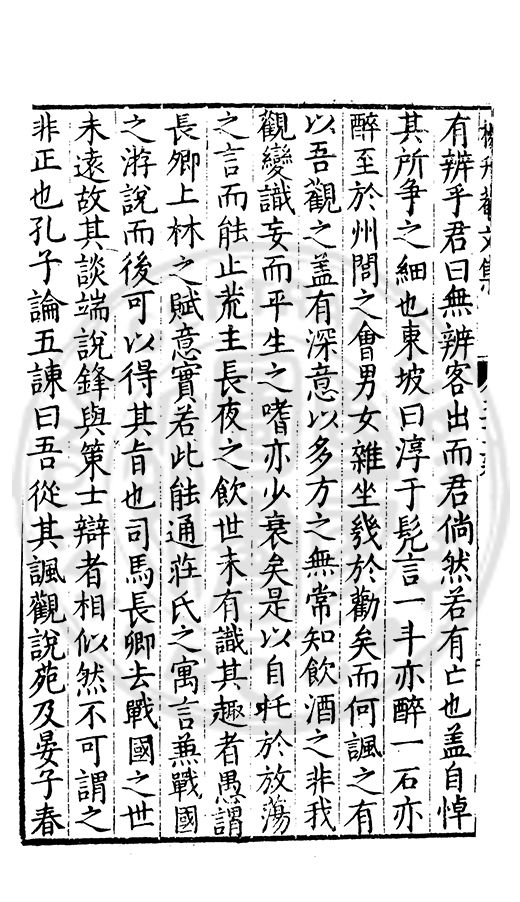 有辨乎君曰無辨客出而君倘然若有亡也盖自悼
其所爭之細也東坡曰淳于髡言一斗亦醉一石亦
醉至於州閭之會男女雜坐幾於勸矣而何諷之有
以吾觀之盖有深意以多方之無常知飲酒之非我
觀變識妄而平生之嗜亦少衰矣是以自托於放蕩
之言而能止荒主長夜之飲世未有識其趣者愚謂
長卿上林之賦意實若此能通莊氏之寓言兼戰國
之游說而後可以得其旨也司馬長卿去戰國之世
未遠故其談端說鋒與策士辯者相似然不可謂之
非正也孔子論五諫曰吾從其諷觀說苑及晏子春